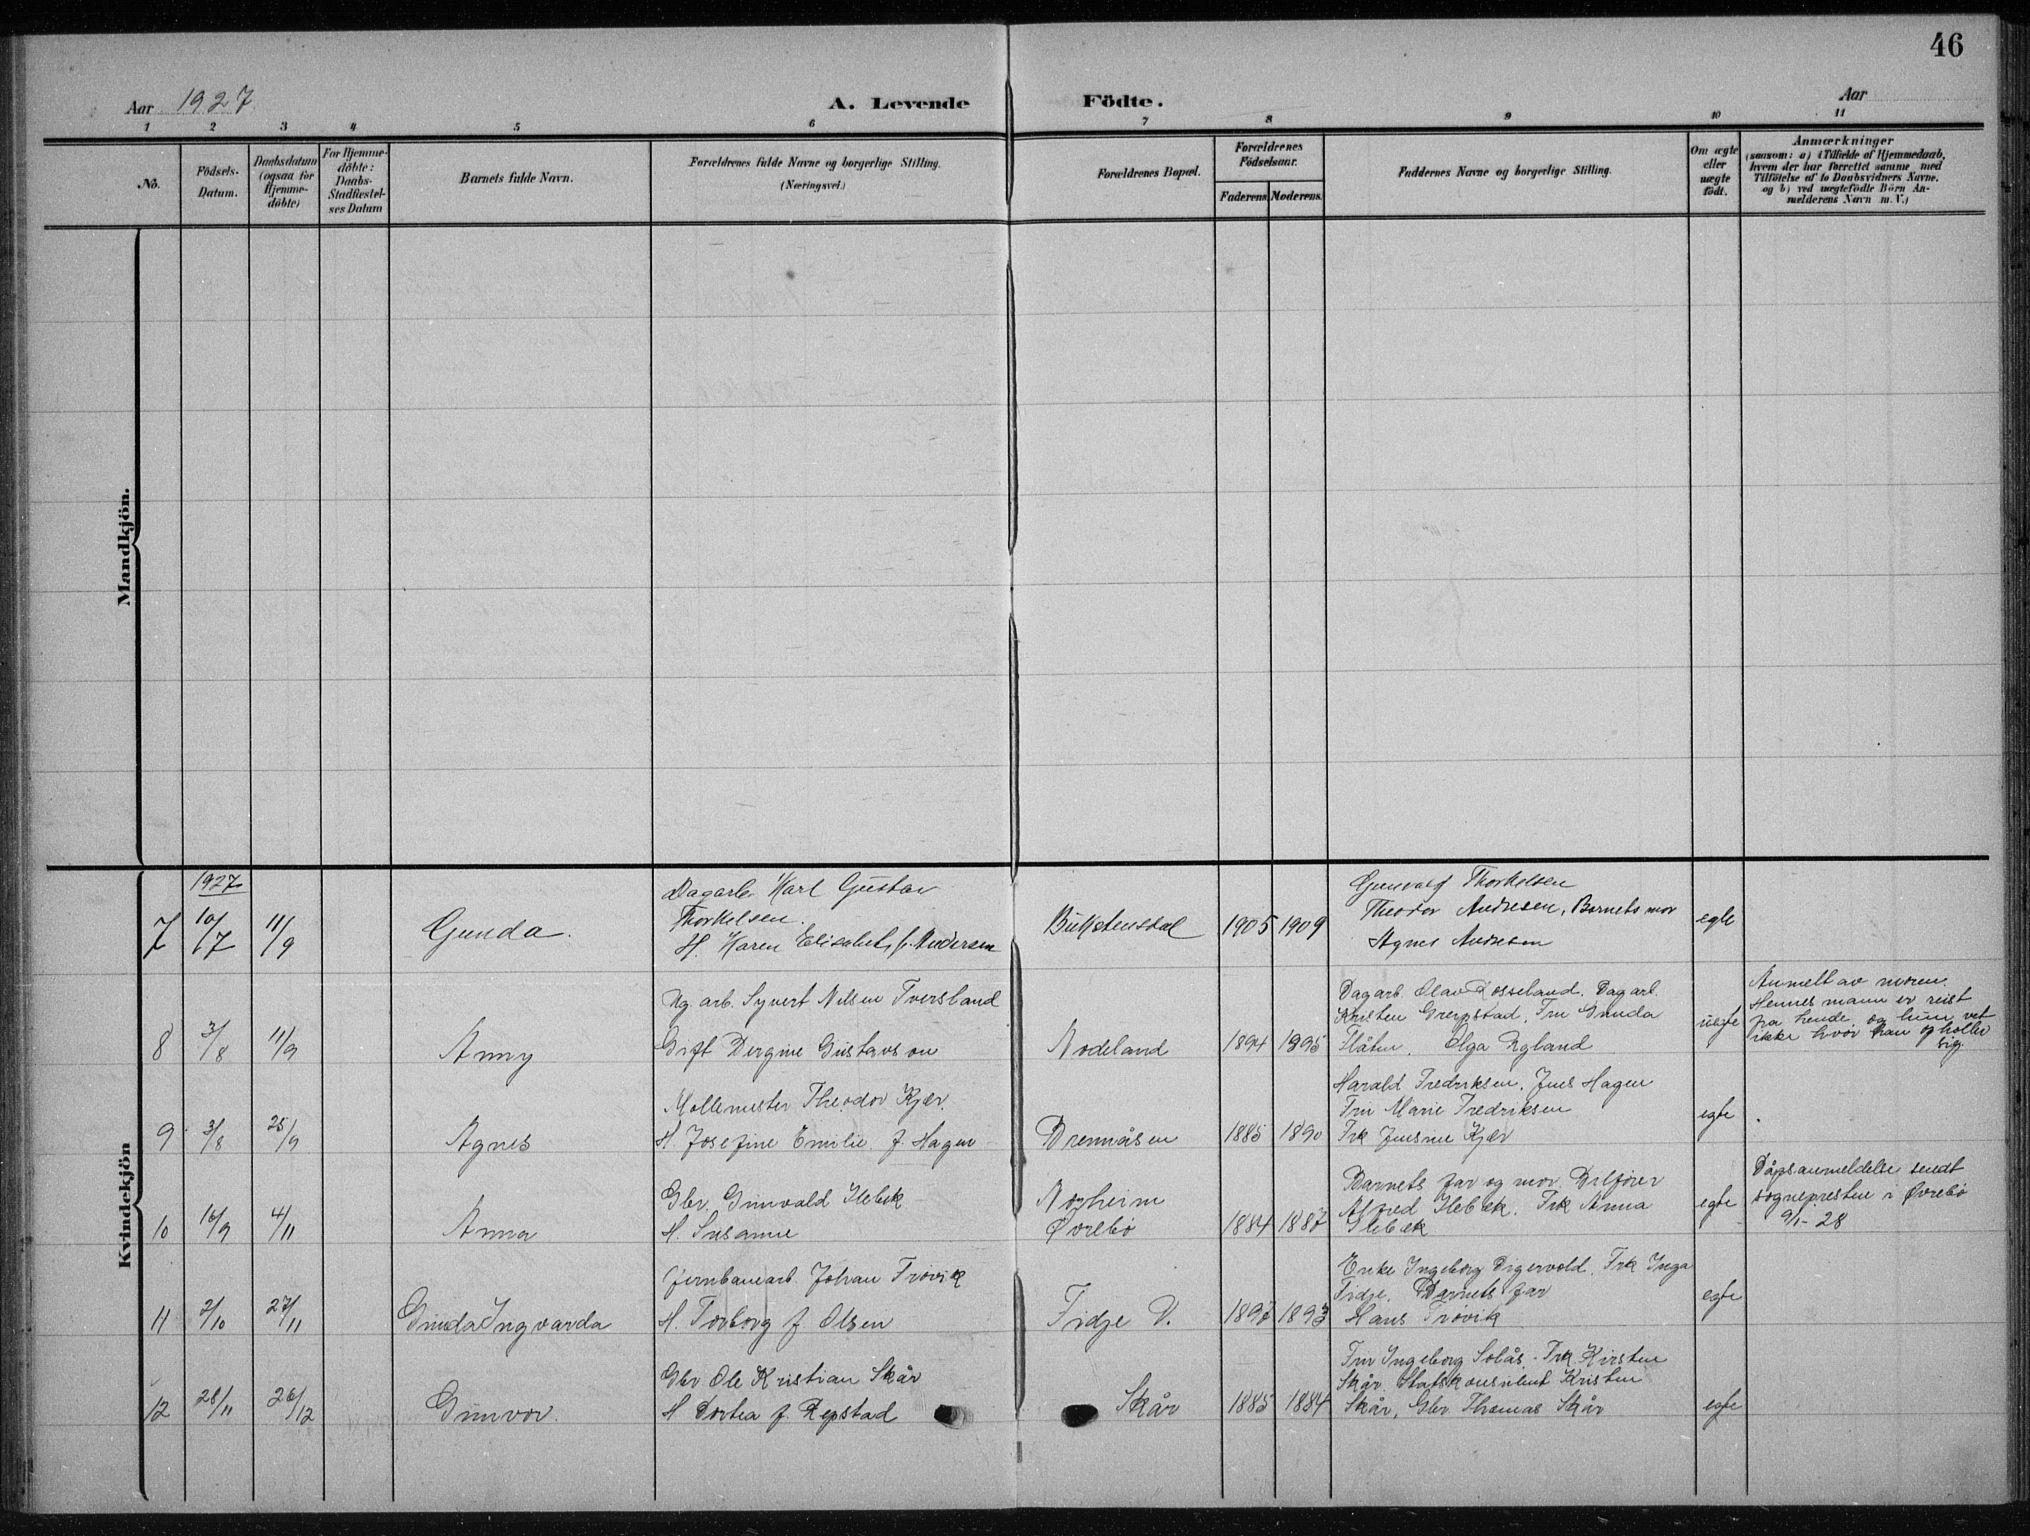 46
Aar 1927
A. Levende
Födte.
Aar
1 2 3 4 5 6 7 8 9 10 11
No.
Födsels-
Datum.
Daabsdatum
(ogsaa for
Hjemme-
döbte)
For Hjemme-
döbte:
Daabs-
Stadfæstel-
ses Datum
Barnets fulde Navn.
Forældrenes fulde Navne og borgerlige Stilling.
(Næringsvei.)
Forældrenes Bopæl.
Forældrenes
Födselsaar.
Faderens
Moderens.
Faddernes Navne og borgerlige Stilling.
Om ægte
eller
uægte
födt.
Anmærkninger
(saasom: a) i Tilfælde af Hjemmedaab,
hvem der har forrettet samme, med
Tilföielse af to Daabsvidners Navne.
og b) ved uægtefödte Börn An-
melderens Navn m. V.)
Mandkjön.
Kvindekjön
1927
7 10/7 11/9 Gunda.
Dagarb. Karl Gustav
Thorkelsen.
H. Karen Elisabet, f. Andersen
1905 1909
Gunvald Thorkelsen
Theodor Andresen, Barnets mor
Agnes Andresen
egte
8 3/8 11/9 Anny
Ug. arb. Syvert Nilsen Tversland
Gift Bergine Gustavson
Nodeland
1894 1895
Dagarb. Olav Rosseland. Dagarb.
Kristen Greipstad. Fru Gunda
Flåten. Olga Ryland
uegte
Anmelt av moren.
Hennes mann er reist
fra hende, og hun vet
ikke hvor han opholder
sig.
9 3/8 25/9 Agnes
Møllemester Theodor Kjær.
H. Josefine Emilie f. Hagen
Brennåsen
1885 1890
Harald Fredriksen. Jens Hagen
Fru Marie Fredriksen
Frk Jensine Kjær
egte
10 16/9 4/11 Anna
Gbr. Gunvald Ilebek
H. Susanne
Norheim
Øvrebø
1884 1887
Barnets far og mor. Bilfører
Alfred Ilebæk. Frk Anna
Ilebæk
egte
Dåpsanmeldelse sendt
sognepresten i Øvrebø
9/1-28
11 2/10 27/11 Gunda Ingvarda
Jernbanearb. Johan Trøvik
H. Torborg f. Olsen
Fidje V.
1897 1893
Enke Ingeborg Digervold. Frk Inga
Fidje. Barnets far
Hans Trøvik
egte
12 28/11 26/12 Gunvor.
Gbr Ole Kristian Skår
H Dortea f. Repstad
Skår
1885 1884
Fru Ingeborg Solås. Frk Kirsten
Skår. Statskonsulent Kristen
Skår, Gbr. Thomas Skår
egte